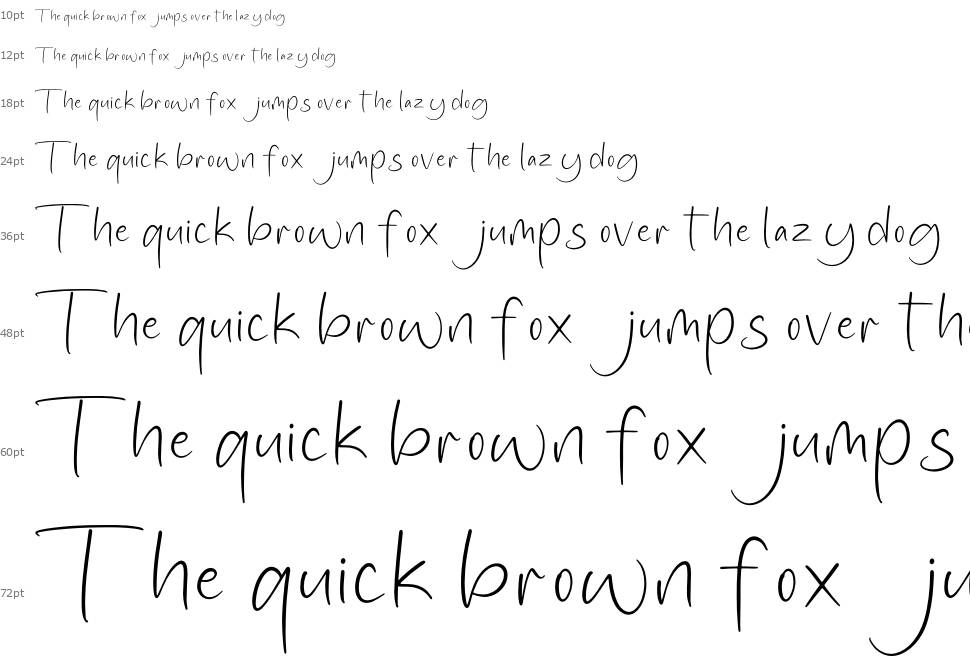 10pt The quick brown fox jumps over the lazy dog
12pt The quick brown fox jumps over the lazy dog
18pt The quick brown fox jumps over the lazy dog
24pt The quick brown fox jumps over the lazy dog
36pt The quick brown fox jumps over the lazy dog
48pt The quick brown fox jumps over th
60pt The quick brown fox jumps
72pt The quick brown fox ju